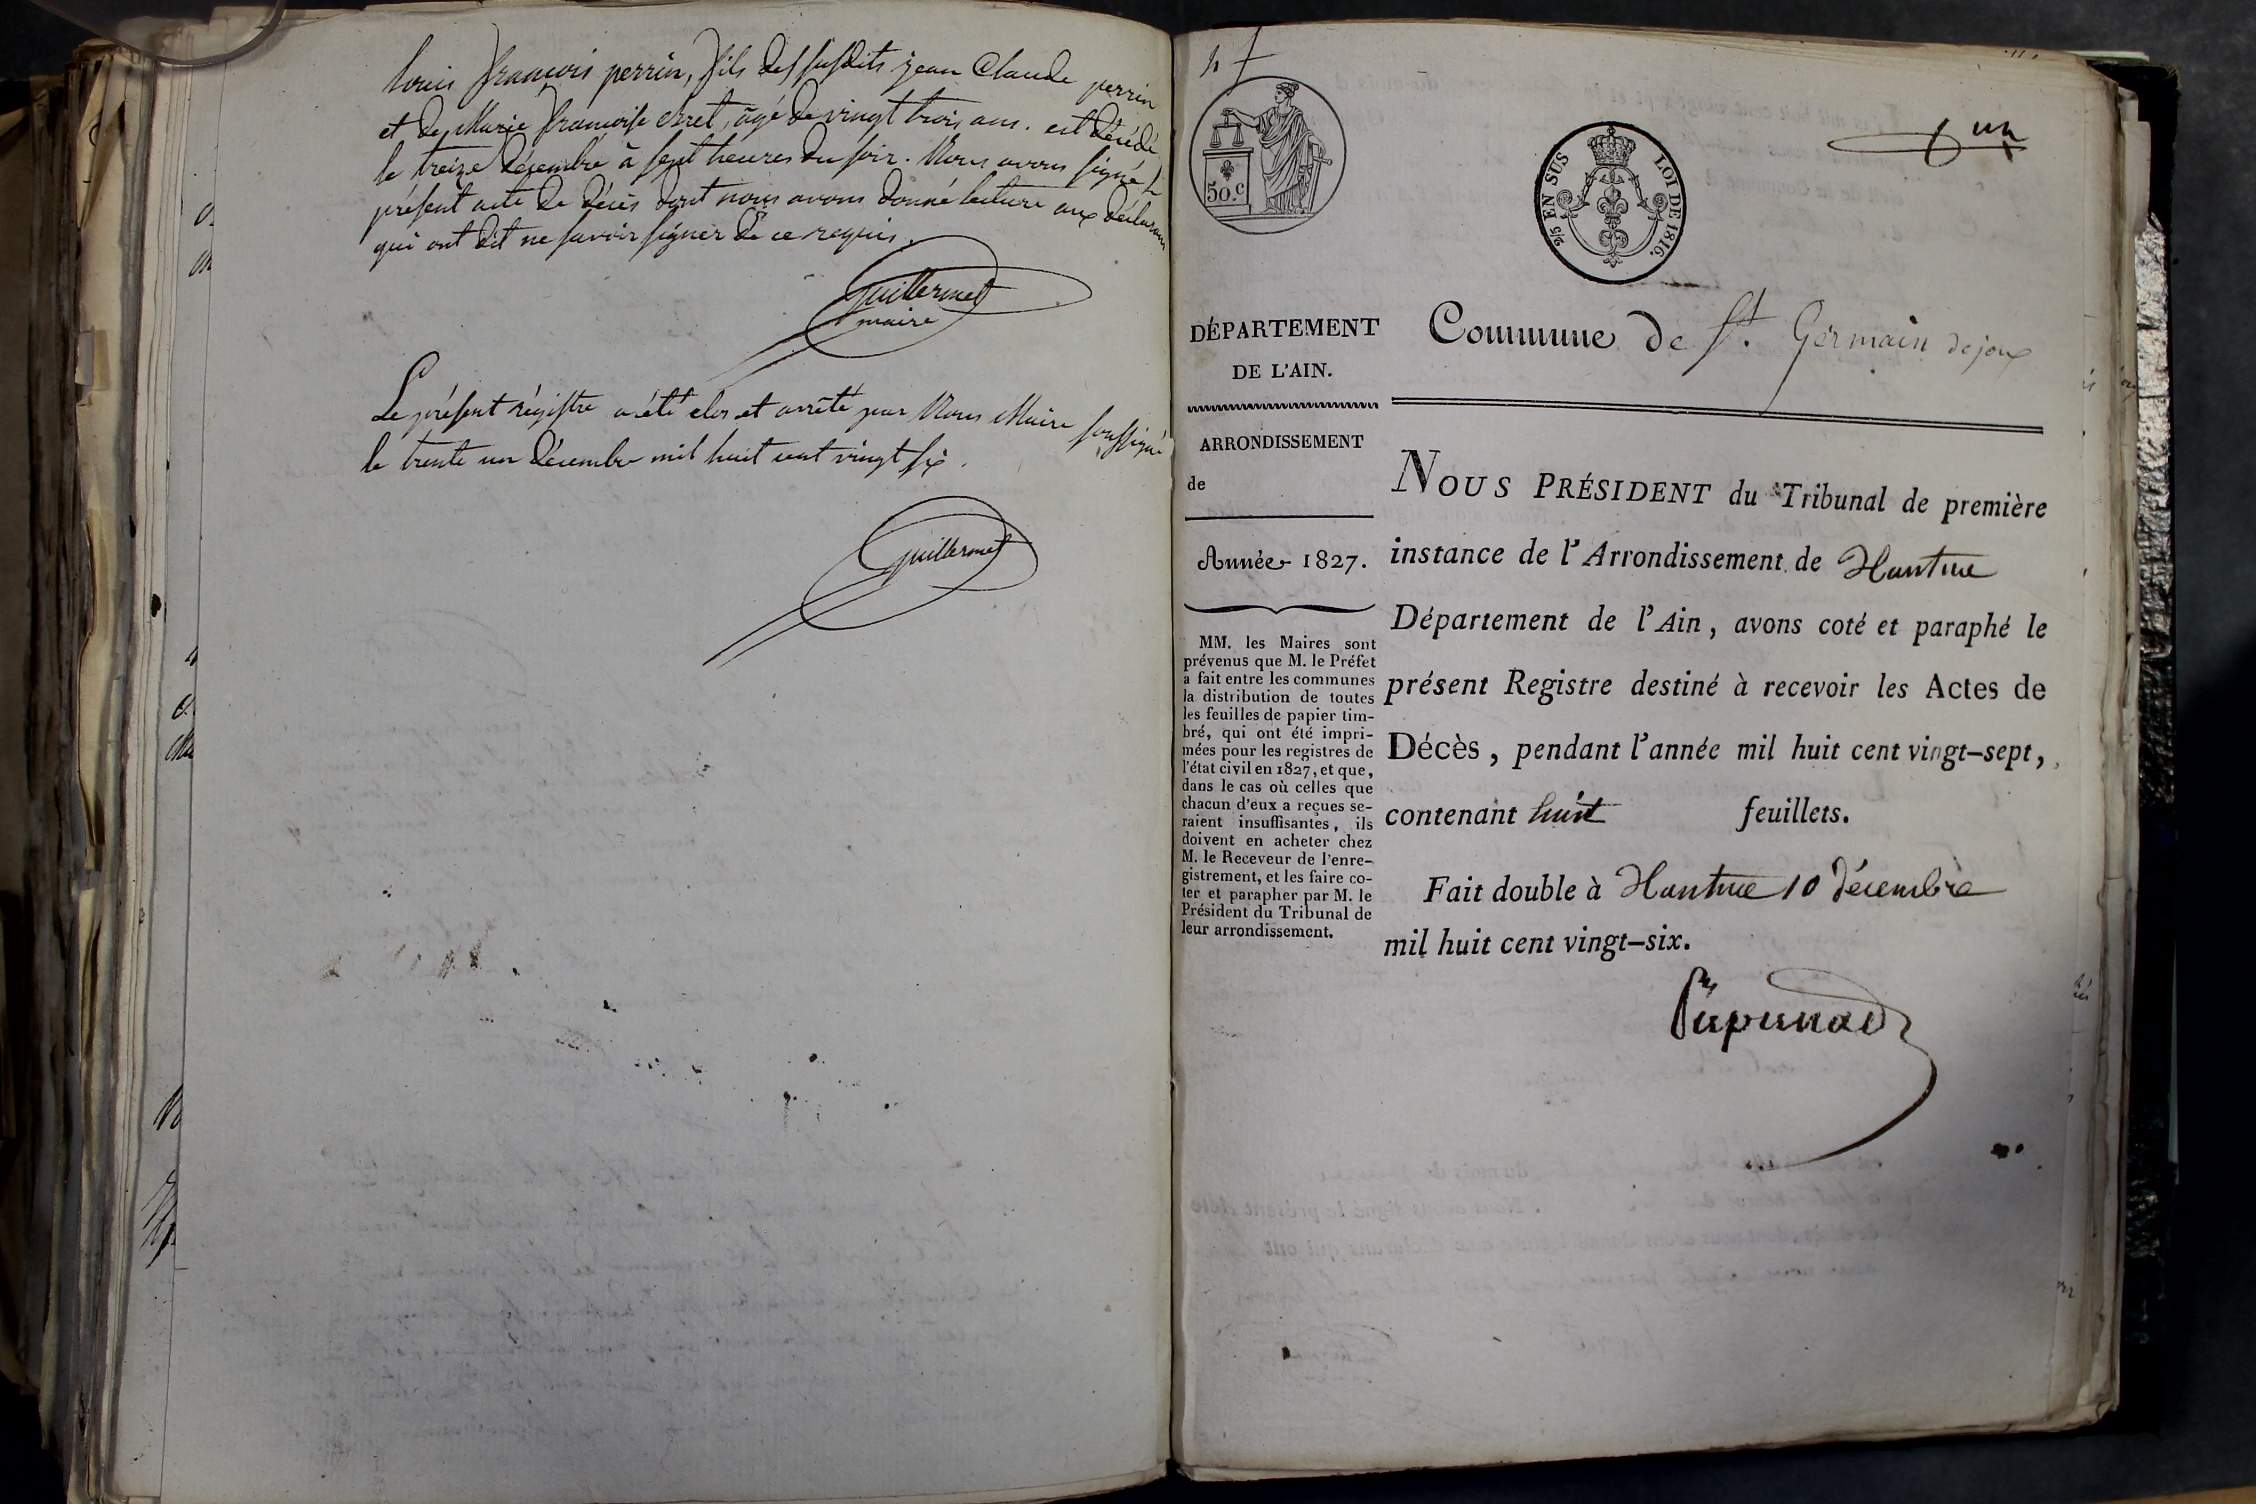 louis françois perrin, fils des susdits jean Claude perrin
et de Marie françoise Evret, âgé de vingt trois ans. est décédé
le treize décembre à sept heures du soir. Nous avons signé le
présent acte de décès dont nous avons donné lecture aux déclarans
qui ont dit ne savoir signer de ce requis.
Guillermet
maire
Le présent régistre a été clos et arrêté par Nous Maire soussigné
le trente un décembre mil huit cent vingt six.
Guillermet
un
50.c
2/5 EN SUS LOI DE 1816.
DÉPARTEMENT
DE L'AIN.
ARRONDISSEMENT
de
Année 1827.
MM. les Maires sont
prévenus que M. le Préfet
a fait entre les communes
la distribution de toutes
les feuilles de papier tim-
bré, qui ont été impri-
mées pour les registres de
l'état civil en 1827, et que,
dans le cas où celles que
chacun d'eux a reçues se-
raient insuffisantes, ils
doivent en acheter chez
M. le Receveur de l'enre-
gistrement, et les faire co-
ter et parapher par M. le
Président du Tribunal de
leur arrondissement.
Commune de St. Germain de joux
NOUS PRÉSIDENT du Tribunal de première
instance de l'Arrondissement de Nantua
Département de l'Ain, avons coté et paraphé le
présent Registre destiné à recevoir les Actes de
Décès, pendant l'année mil huit cent vingt-sept,
contenant huit feuillets.
Fait double à Nantua 10 décembre
mil huit cent vingt-six.